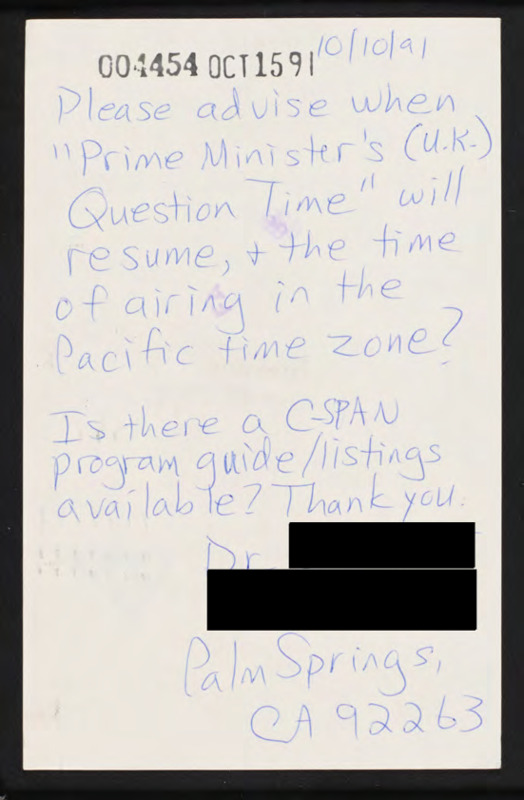 10/10/91
004454 OCT1591
Please advise when
"Prime Minister's (U.K.)
Question Time" will
resume, + the time
of airing in the
Pacific time zone?
Is there a C-SPAN
program guide/listings
available? Thank you.
Dr.
Palm Springs,
CA 92263